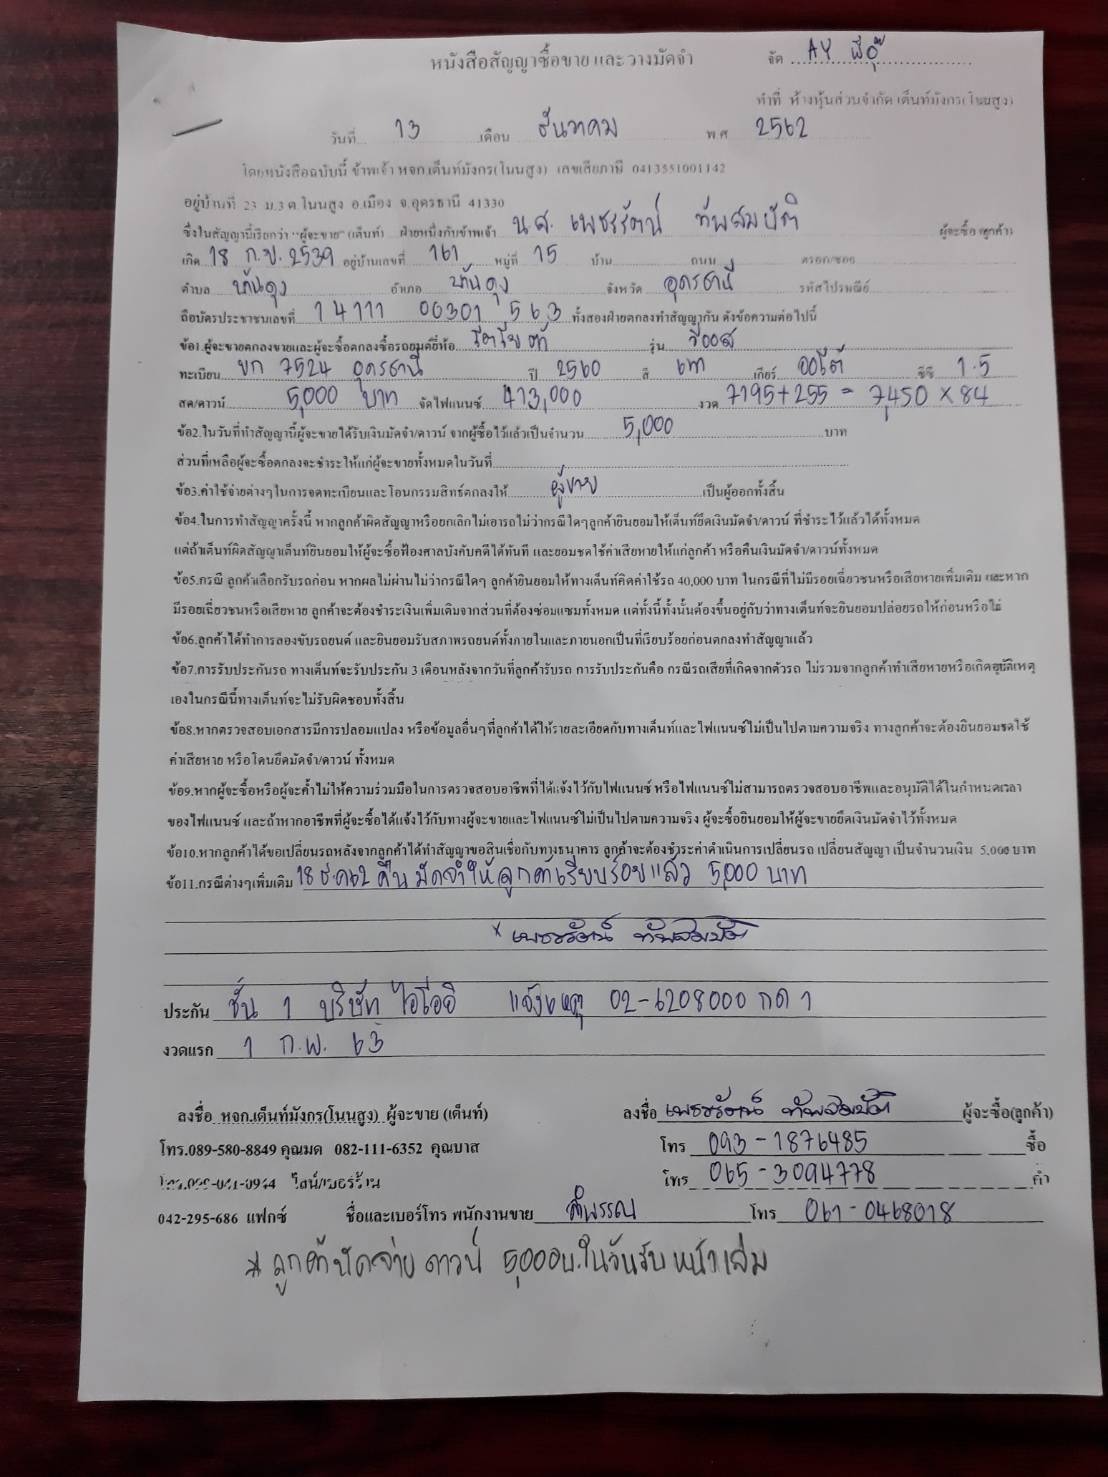 หนังสือสัญญาซื้อขาย และ วางมัดจำ
จัด AY
ทำที่ ห้างหุ้นส่วนจำกัด เต็นท์มังกร(โนนสูง)
วันที่ 13 เดือน ธันวาคม พ.ศ 2562
โดยหนังสือฉบับนี้ ข้าพเจ้า หจก.เต็นท์มังกร(โนนสูง) เลขเสียภาษี 0413551001142
อยู่บ้านที่ 23 ม.3 ต.โนนสูง อ.เมือง จ.อุดรธานี 41330
ซึ่งในสัญญานี้เรียกว่า "ผู้จะขาย" (เต็นท์) ฝ่ายหนึ่งกับข้าพเจ้า น.ส. เพชรรัตน์ ทัพสมบัติ ผู้จะซื้อ (ลูกค้า)
เกิด 18 ก.ย. 2539 อยู่บ้านเลขที่ 161 หมู่ที่ 15 บ้าน ถนน ตรอก/ซอย
ตำบล บ้านดุง อำเภอ บ้านดุง จังหวัด อุดรธานี รหัสไปรษณีย์
ถือบัตรประชาชนเลขที่ 14111 00301 563 ทั้งสองฝ่ายตกลงทำสัญญากัน ดังข้อความต่อไปนี้
ข้อ1.ผู้จะขายตกลงขายและผู้จะซื้อตกลงซื้อรถยนต์ยี่ห้อ โตโยต้า รุ่น วีออส
ทะเบียน ขก 7524 อุดรธานี ปี 2560 สี เทา เกียร์ ออโต้ ซีซี 1.5
สด/ดาวน์ 5,000 บาท จัดไฟแนนซ์ 413,000 งวด 7195+255 = 7,450 x 84
ข้อ2.ในวันที่ทำสัญญานี้ผู้จะขายได้รับเงินมัดจำ/ดาวน์ จากผู้ซื้อไว้แล้วเป็นจำนวน 5,000 บาท
ส่วนที่เหลือผู้จะซื้อตกลงจะชำระให้แก่ผู้จะขายทั้งหมดในวันที่
ข้อ3.ค่าใช้จ่ายต่างๆในการจดทะเบียนและโอนกรรมสิทธ์ตกลงให้ ผู้ขาย เป็นผู้ออกทั้งสิ้น
ข้อ4.ในการทำสัญญาครั้งนี้ หากลูกค้าผิดสัญญาหรือยกเลิกไม่เอารถไม่ว่ากรณีใดๆลูกค้ายินยอมให้เต็นท์ยึดเงินมัดจำ/ดาวน์ ที่ชำระไว้แล้วได้ทั้งหมด
แต่ถ้าเต็นท์ผิดสัญญาเต็นท์ยินยอมให้ผู้จะซื้อฟ้องศาลบังคับคดีได้ทันที และยอมชดใช้ค่าเสียหายให้แก่ลูกค้า หรือคืนเงินมัดจำ/ดาวน์ทั้งหมด
ข้อ5.กรณี ลูกค้าเลือกรับรถก่อน หากผลไม่ผ่านไม่ว่ากรณีใดๆ ลูกค้ายินยอมให้ทางเต็นท์คิดค่าใช้รถ 40,000 บาท ในกรณีที่ไม่มีรอยเฉี่ยวชนหรือเสียหายเพิ่มเติม และหาก
มีรอยเฉี่ยวชนหรือเสียหาย ลูกค้าจะต้องชำระเงินเพิ่มเติมจากส่วนที่ต้องซ่อมแซมทั้งหมด แต่ทั้งนี้ทั้งนั้นต้องขึ้นอยู่กับว่าทางเต็นท์จะยินยอมปล่อยรถให้ก่อนหรือไม่
ข้อ6.ลูกค้าได้ทำการลองขับรถยนต์ และยินยอมรับสภาพรถยนต์ทั้งภายในและภายนอกเป็นที่เรียบร้อยก่อนตกลงทำสัญญาแล้ว
ข้อ7.การรับประกันรถ ทางเต็นท์จะรับประกัน 3 เดือนหลังจากวันที่ลูกค้ารับรถ การรับประกันคือ กรณีรถเสียที่เกิดจากตัวรถ ไม่รวมจากลูกค้าทำเสียหายหรือเกิดอุบัติเหตุ
เองในกรณีนี้ทางเต็นท์จะไม่รับผิดชอบทั้งสิ้น
ข้อ8.หากตรวจสอบเอกสารมีการปลอมแปลง หรือข้อมูลอื่นๆที่ลูกค้าได้ให้รายละเอียดกับทางเต็นท์และไฟแนนซ์ไม่เป็นไปตามความจริง ทางลูกค้าจะต้องยินยอมชดใช้
ค่าเสียหาย หรือโดนยึดมัดจำ/ดาวน์ ทั้งหมด
ข้อ9.หากผู้จะซื้อหรือผู้จะค้ำไม่ให้ความร่วมมือในการตรวจสอบอาชีพที่ได้แจ้งไว้กับไฟแนนซ์ หรือไฟแนนซ์ไม่สามารถตรวจสอบอาชีพและอนุมัติได้ในกำหนดเวลา
ของไฟแนนซ์ และถ้าหากอาชีพที่ผู้จะซื้อได้แจ้งไว้กับทางผู้จะขายและไฟแนนซ์ไม่เป็นไปตามความจริง ผู้จะซื้อยินยอมให้ผู้จะขายยึดเงินมัดจำไว้ทั้งหมด
ข้อ10.หากลูกค้าได้ขอเปลี่ยนรถหลังจากลูกค้าได้ทำสัญญาขอสินเชื่อกับทางธนาคาร ลูกค้าจะต้องชำระค่าดำเนินการเปลี่ยนรถ เปลี่ยนสัญญา เป็นจำนวนเงิน 5,000 บาท
ข้อ11.กรณีต่างๆเพิ่มเติม 18 ธ.ค 62 คืนมัดจำให้ลูกค้าเรียบร้อยแล้ว 5,000 บาท
x เพชรรัตน์ ทัพสมบัติ
ประกัน ชั้น 1 บริษัท ไอโออิ แจ้งเหตุ 02-6208000 กด 1
งวดแรก 1 ก.พ. 63
ลงชื่อ หจก.เต็นท์มังกร(โนนสูง) ผู้จะขาย (เต็นท์) ลงชื่อ เพชรรัตน์ ทัพสมบัติ ผู้จะซื้อ(ลูกค้า)
โทร.089-580-8849 คุณมด 082-111-6352 คุณบาส โทร 093-1876485 ซื้อ
ไลน์/เบอร์ร้าน โทร 065-3094778 ค้ำ
042-295-686 แฟกซ์ ชื่อและเบอร์โทร พนักงานขาย ลำพรรณ โทร 061-0468018
* ลูกค้านัดจ่ายดาวน์ 5,000บ.ในวันรับหน้าเล่ม